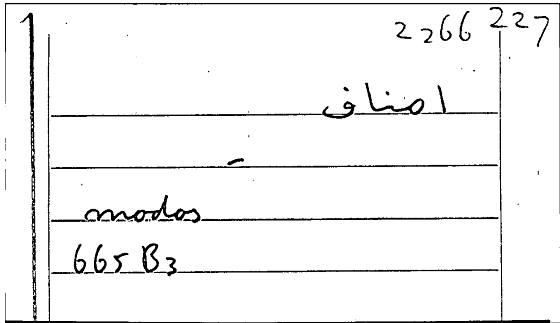 2266 227
اصناف
-
modos
665 B3